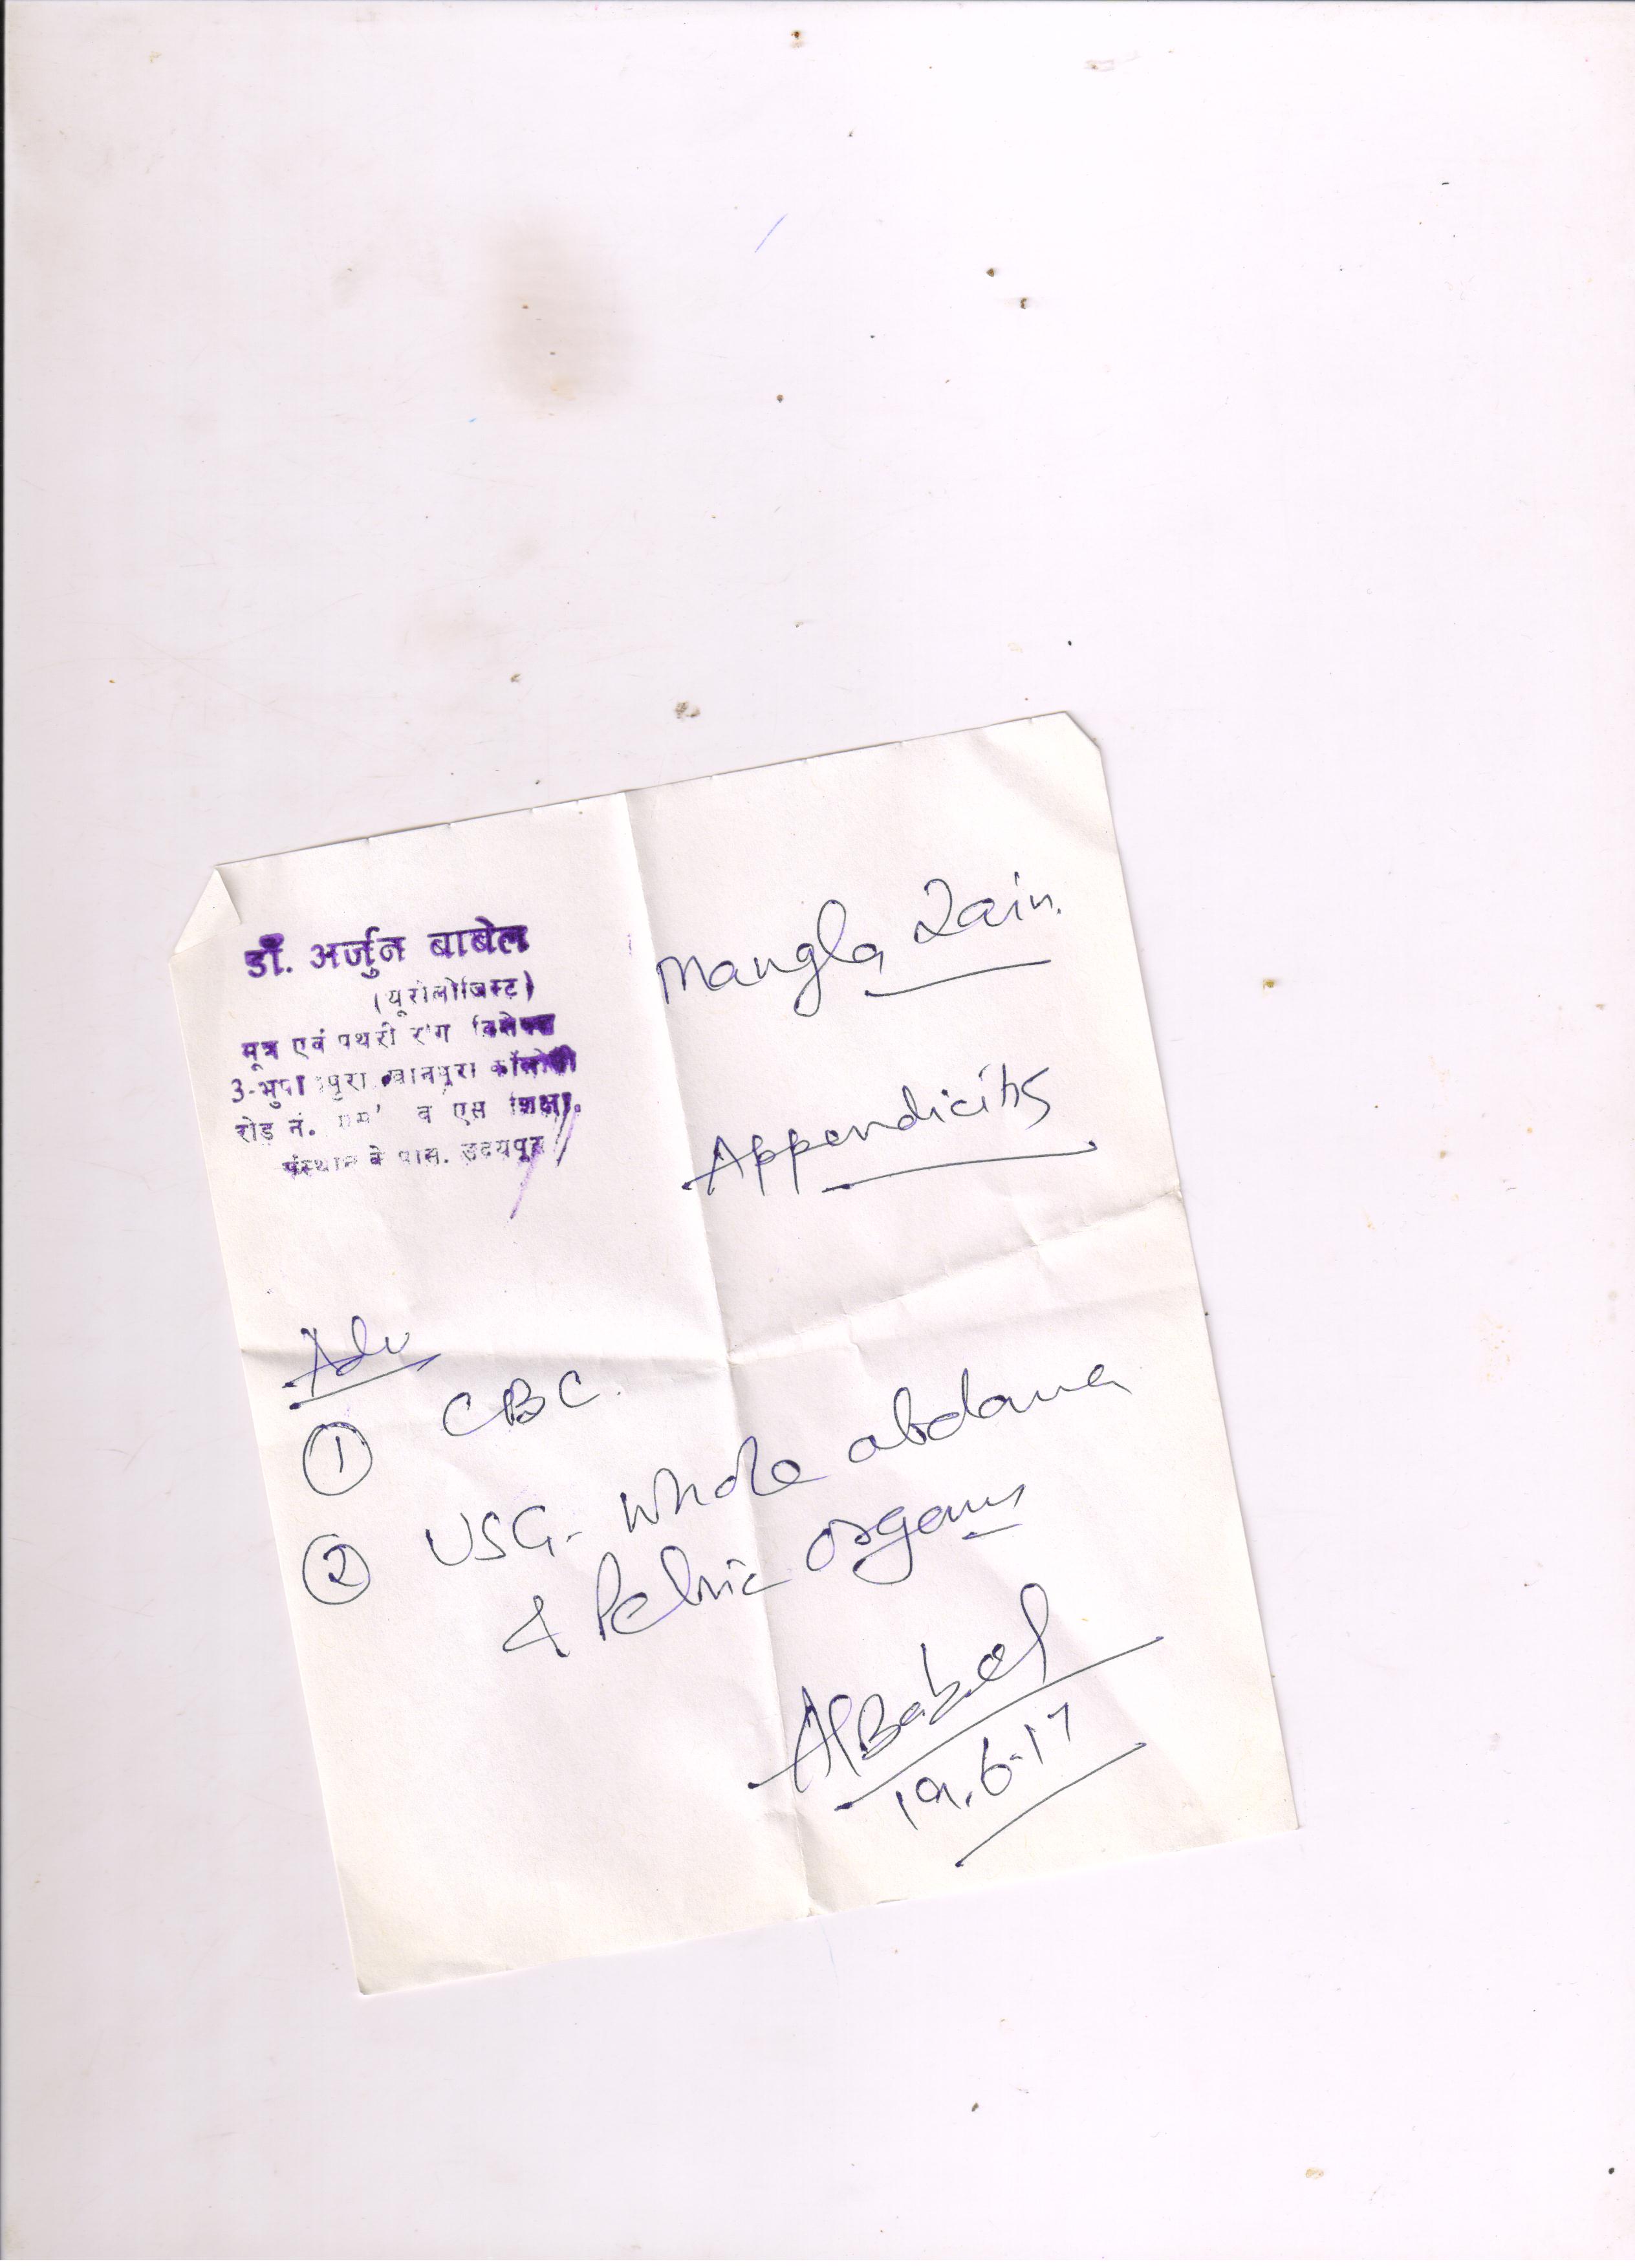 डॉ. अर्जुन बाबेल
(यूरोलोजिस्ट)
मूत्र एवं पथरी रोग
रोड नं. व एस शिक्षा.
संस्थान के पास. उदयपुर
Mangla Jain.
Appendicitis
Adv
1 CBC.
2 USG. Whole abdomen
& Pelvic organs
Babel
19.6.17